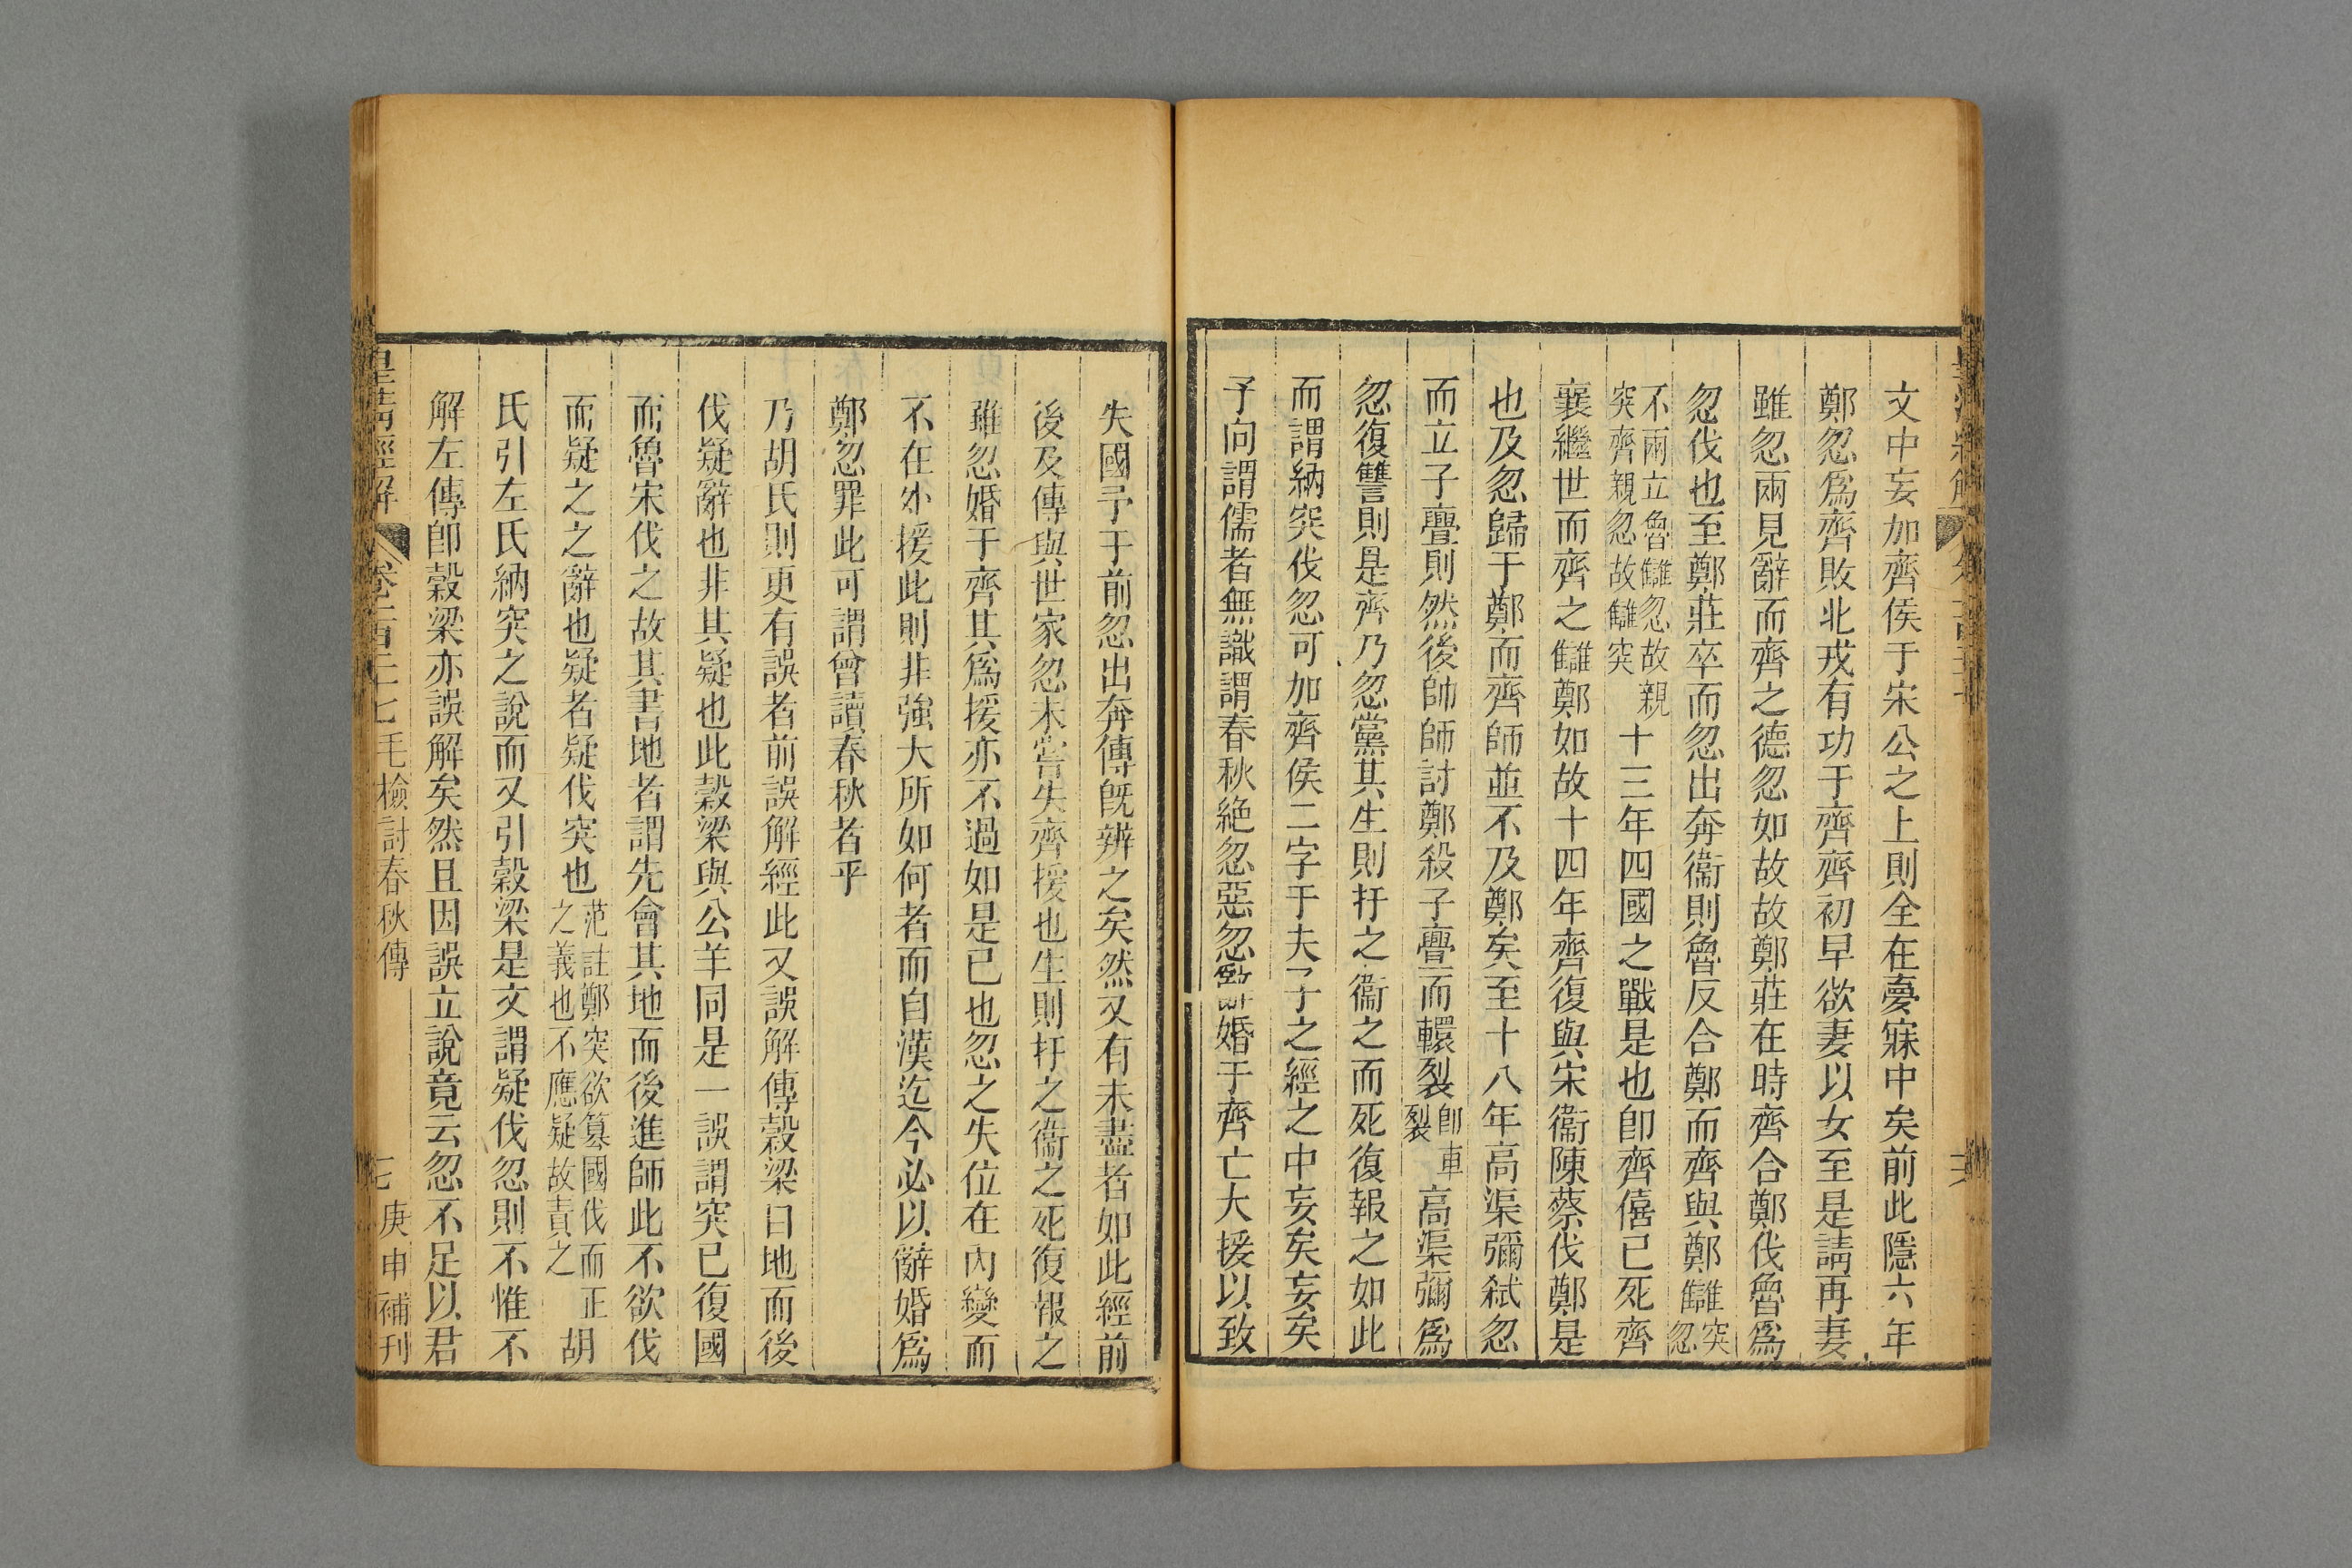 文中妄加齊侯于宋公之上則全在夢寐中矣前此隱六年
鄭忽爲齊敗北戎有功于齊齊初早欲妻以女至是請再妻
雖忽兩見辭而齊之德忽如故故鄭莊在時齊合鄭伐魯爲
忽伐也至鄭莊卒而忽出奔衞則魯反合鄭而齊與鄭讎突讎忽
不兩立魯讎忽故親突齊親忽故讎突十三年四國之戰是也卽齊僖已死齊
襄繼世而齊之讎鄭如故十四年齊復與宋衞陳蔡伐鄭是
也及忽歸于鄭而齊師並不及鄭矣至十八年高渠彌弒忽
而立子亹則然後帥師討鄭殺子亹而轘裂卽車裂高渠彌爲
忽復讐則是齊乃忽黨其生則扞之衞之而死復報之如此
而謂納突伐忽可加齊侯二字于夫子之經之中妄矣妄矣
予向謂儒者無識謂春秋絶忽惡忽婚于齊亡大援以致
失國予于前忽出奔傳旣辨之矣然又有未盡者如此經前
後及傳與世家忽未嘗失齊援也生則扞之衞之死復報之
雖忽婚于齊其爲援亦不過如是已也忽之失位在內變而
不在外援此則非強大所如何者而自漢迄今必以辭婚爲
鄭忽罪此可謂曾讀春秋者乎
乃胡氏則更有誤者前誤解經此又誤解傳穀梁曰地而後
伐疑辭也非其疑也此穀梁與公羊同是一誤謂突已復國
而魯宋伐之故其書地者謂先會其地而後進師此不欲伐
而疑之之辭也疑者疑伐突也范註鄭突欲簒國伐而正之義也不應疑故責之胡
氏引左氏納突之說而又引穀梁是文謂疑伐忽則不惟不
解左傳卽穀梁亦誤解矣然且因誤立說竟云忽不足以君
皇清經解 卷一百二十七 毛檢討春秋傳 七 庚申補刊